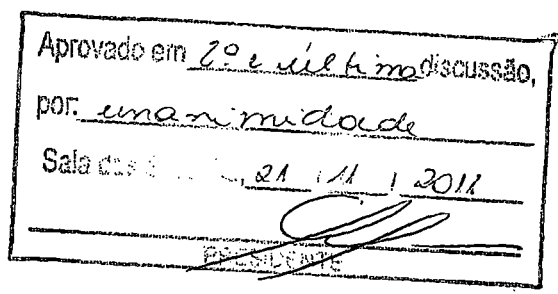 Aprovado em 2º e última discussão,
por: unanimidade
Sala das, 21 / 11 / 2011
PRESIDENTE